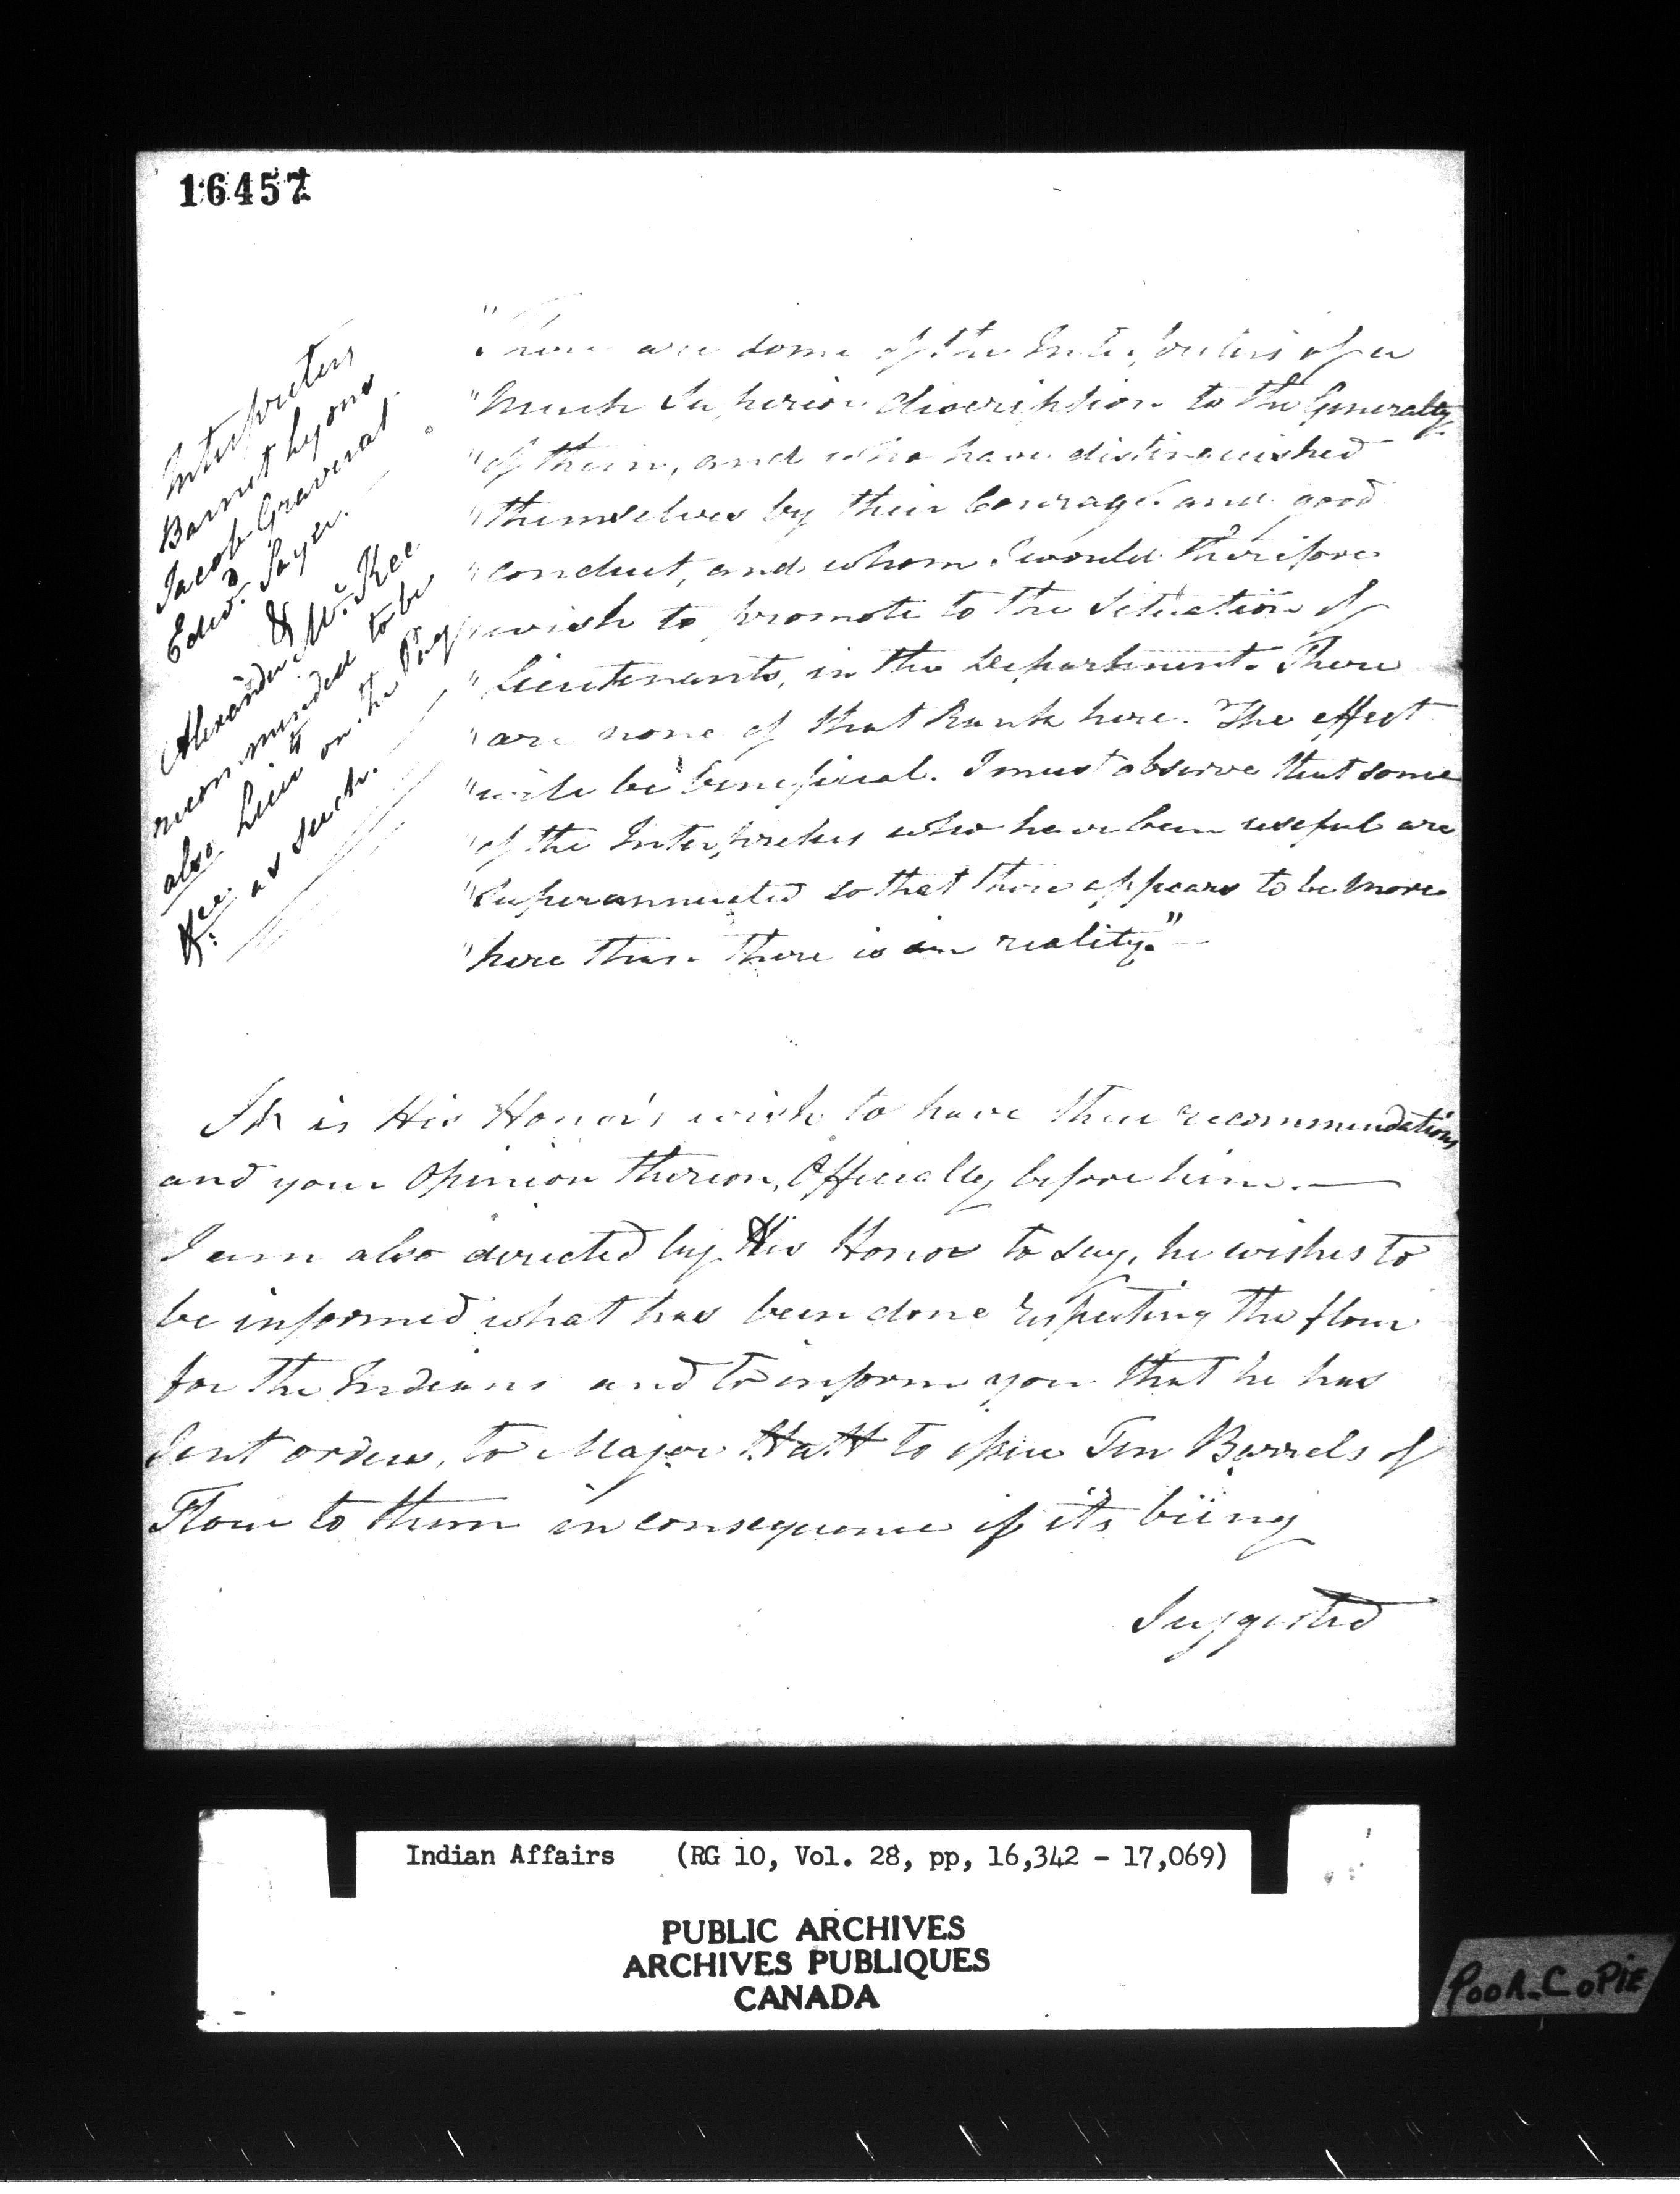 16457
Interpreters
Barnet Lyons
Jacob Graverat
Edwd. Sayer.
&
Alexander Mc.Kee
recommended to be
also Lieuts on the Pay
&c. as such.
"There are some of the Interpreters of a
"Much Superior discription to the Generality
"of them, and who have distinguished
"themselves by their Courage and good
"conduct, and whom I would therefore
"wish to promote to the Situation of
"Lieutenants, in the Department. There
"are none of that Rank here. The effect
"will be beneficial. I must observe that some
"of the Interpreters who have been useful are
"Superannuated so that there appears to be more
"here than there is in reality."
It is His Honor's wish to have these recommendations
and your Opinion thereon, Officially before him.
I am also directed by His Honor to say, he wishes to
be informed what has been done respecting the flour
for the Indians and to inform you that he has
Sent orders, to Major Hatt to issue Ten Barrels of
Flour to them in consequence of it's being
Suggested
Indian Affairs (RG 10, Vol. 28, pp, 16,342 - 17,069)
PUBLIC ARCHIVES
ARCHIVES PUBLIQUES
CANADA
POOR COPIE